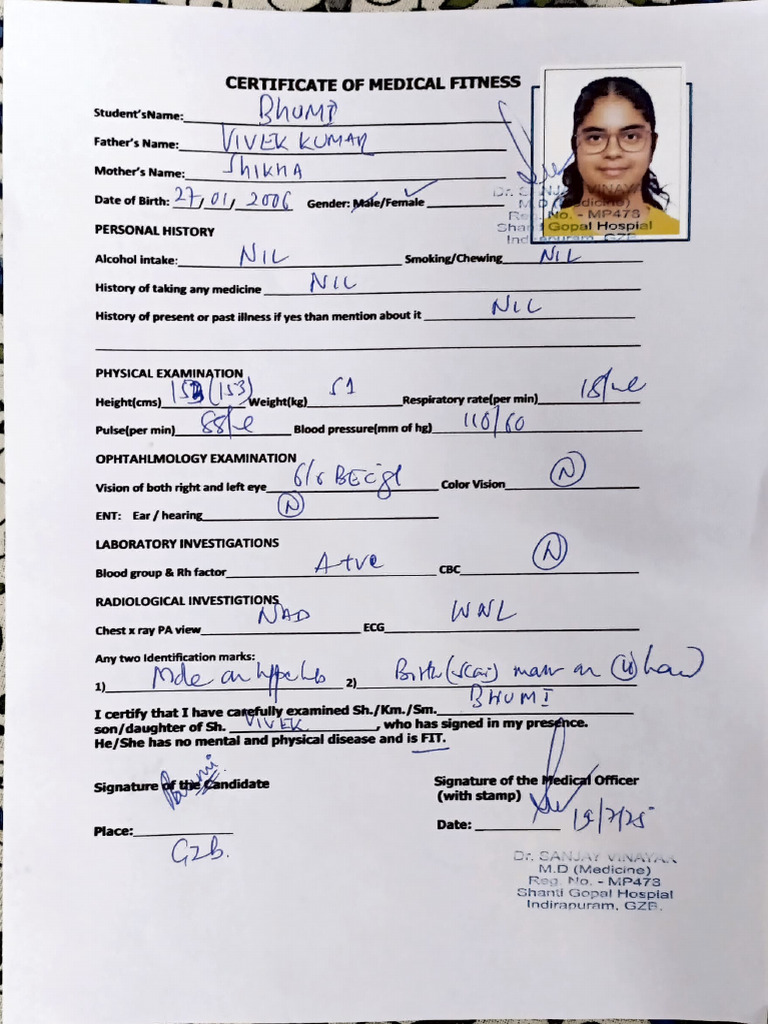 CERTIFICATE OF MEDICAL FITNESS
Student'sName: BHUMI
Father's Name: VIVEK KUMAR
Mother's Name: SHIKHA
Date of Birth: 27, 01, 2006 Gender: Male/Female
Dr. SANJAY VINAYAK
M.D (Medicine)
Reg. No. - MP473
Shanti Gopal Hospial
Indirapuram, GZB.
PERSONAL HISTORY
Alcohol intake: NIL Smoking/Chewing NIL
History of taking any medicine NIL
History of present or past illness if yes than mention about it NIL
PHYSICAL EXAMINATION
Height(cms) (153) Weight(kg) 51 Respiratory rate(per min) 18/
Pulse(per min) 88/ Blood pressure(mm of hg) 110/60
OPHTAHLMOLOGY EXAMINATION
Vision of both right and left eye 6/6 BE Color Vision N
ENT: Ear / hearing N
LABORATORY INVESTIGATIONS
Blood group & Rh factor A+ve CBC N
RADIOLOGICAL INVESTIGTIONS
Chest x ray PA view NAD ECG WNL
Any two Identification marks:
1) Mole on 2) Birth (scar) mark on
I certify that I have carefully examined Sh./Km./Sm. BHUMI
son/daughter of Sh. VIVEK, who has signed in my presence.
He/She has no mental and physical disease and is FIT.
Signature of the Candidate
Signature of the Medical Officer
(with stamp)
Place: GZB.
Date: 19/7/25
Dr. SANJAY VINAYAK
M.D (Medicine)
Reg. No. - MP473
Shanti Gopal Hospial
Indirapuram, GZB.